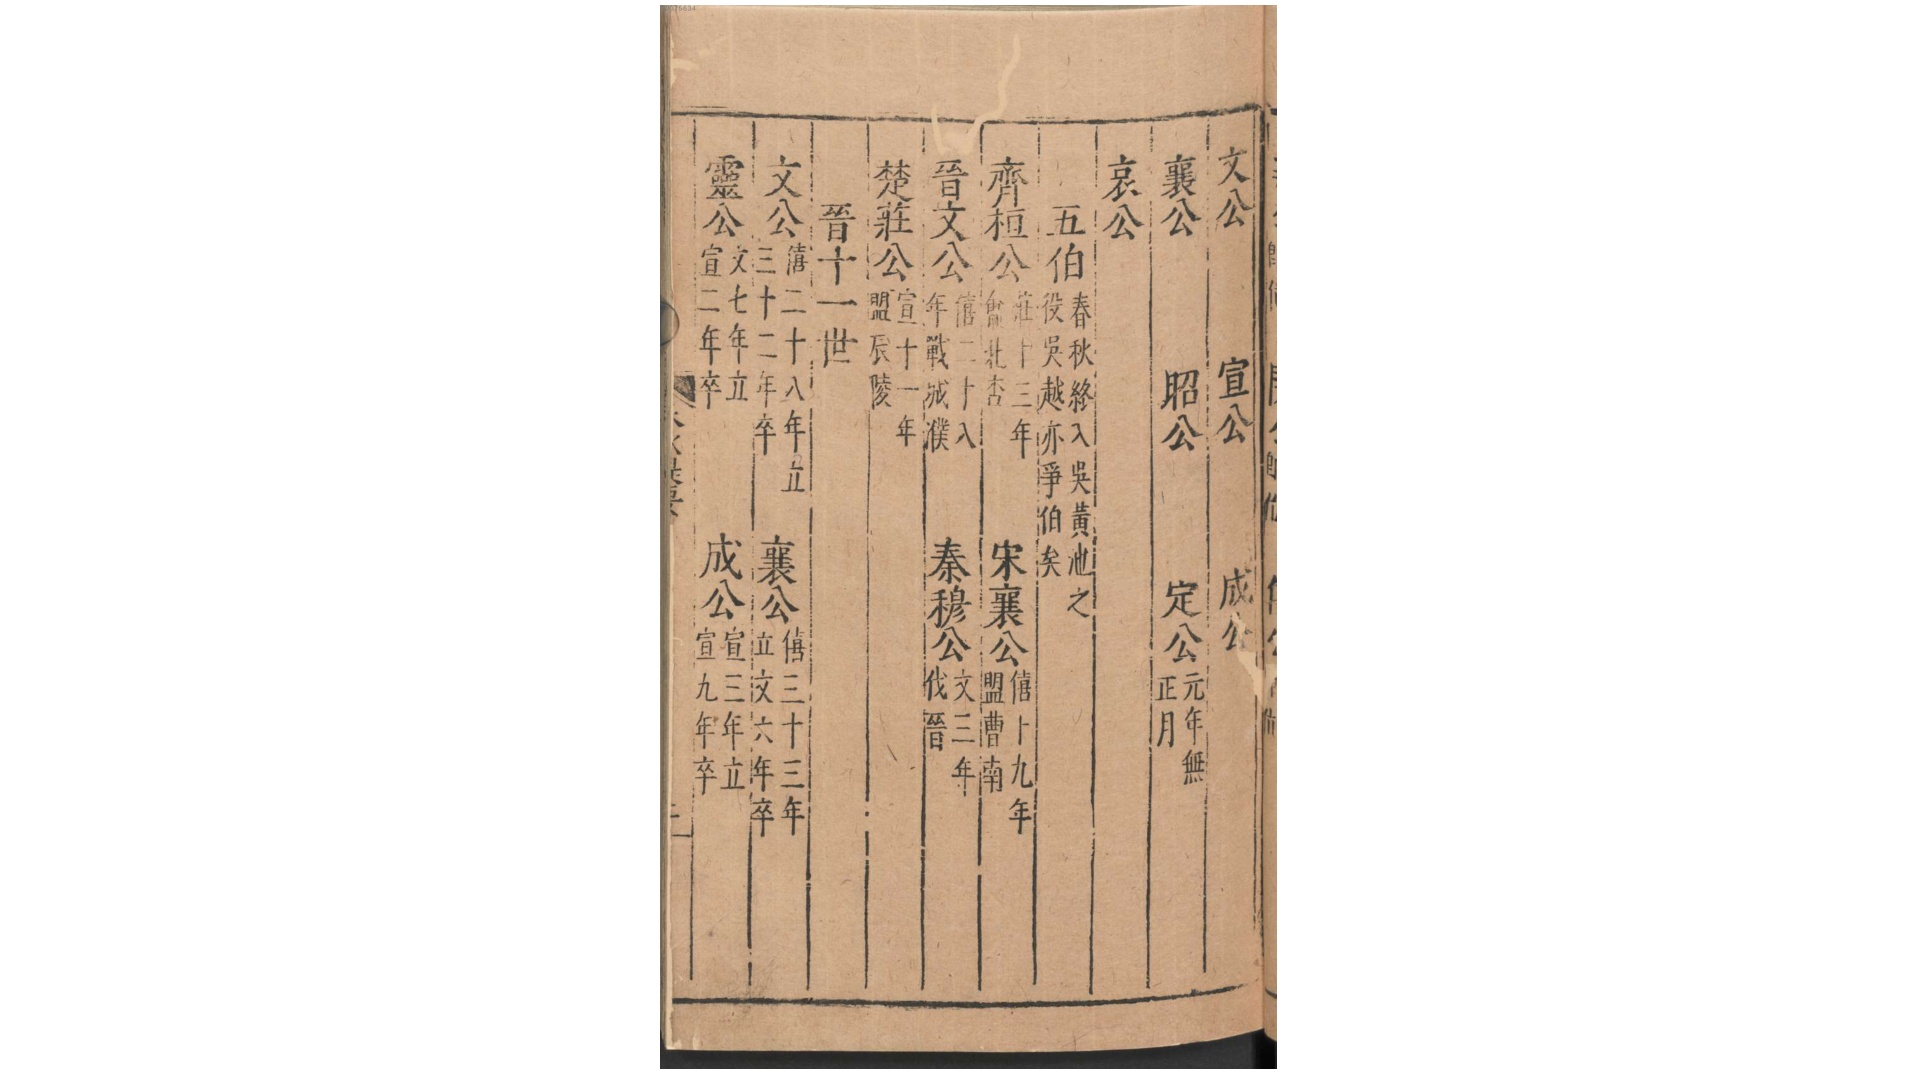 文公　宣公　成公
襄公　昭公　定公元年無正月
哀公
五伯春秋終入吳黃池之役吳越亦爭伯矣
齊桓公莊十三年會北杏　宋襄公僖十九年盟曹南
晉文公僖二十八年戰城濮　秦穆公文三年伐晉
楚莊公宣十一年盟辰陵
晉十一世
文公僖二十八年立三十二年卒　襄公僖三十三年立文六年卒
靈公文七年立宣二年卒　成公宣三年立宣九年卒